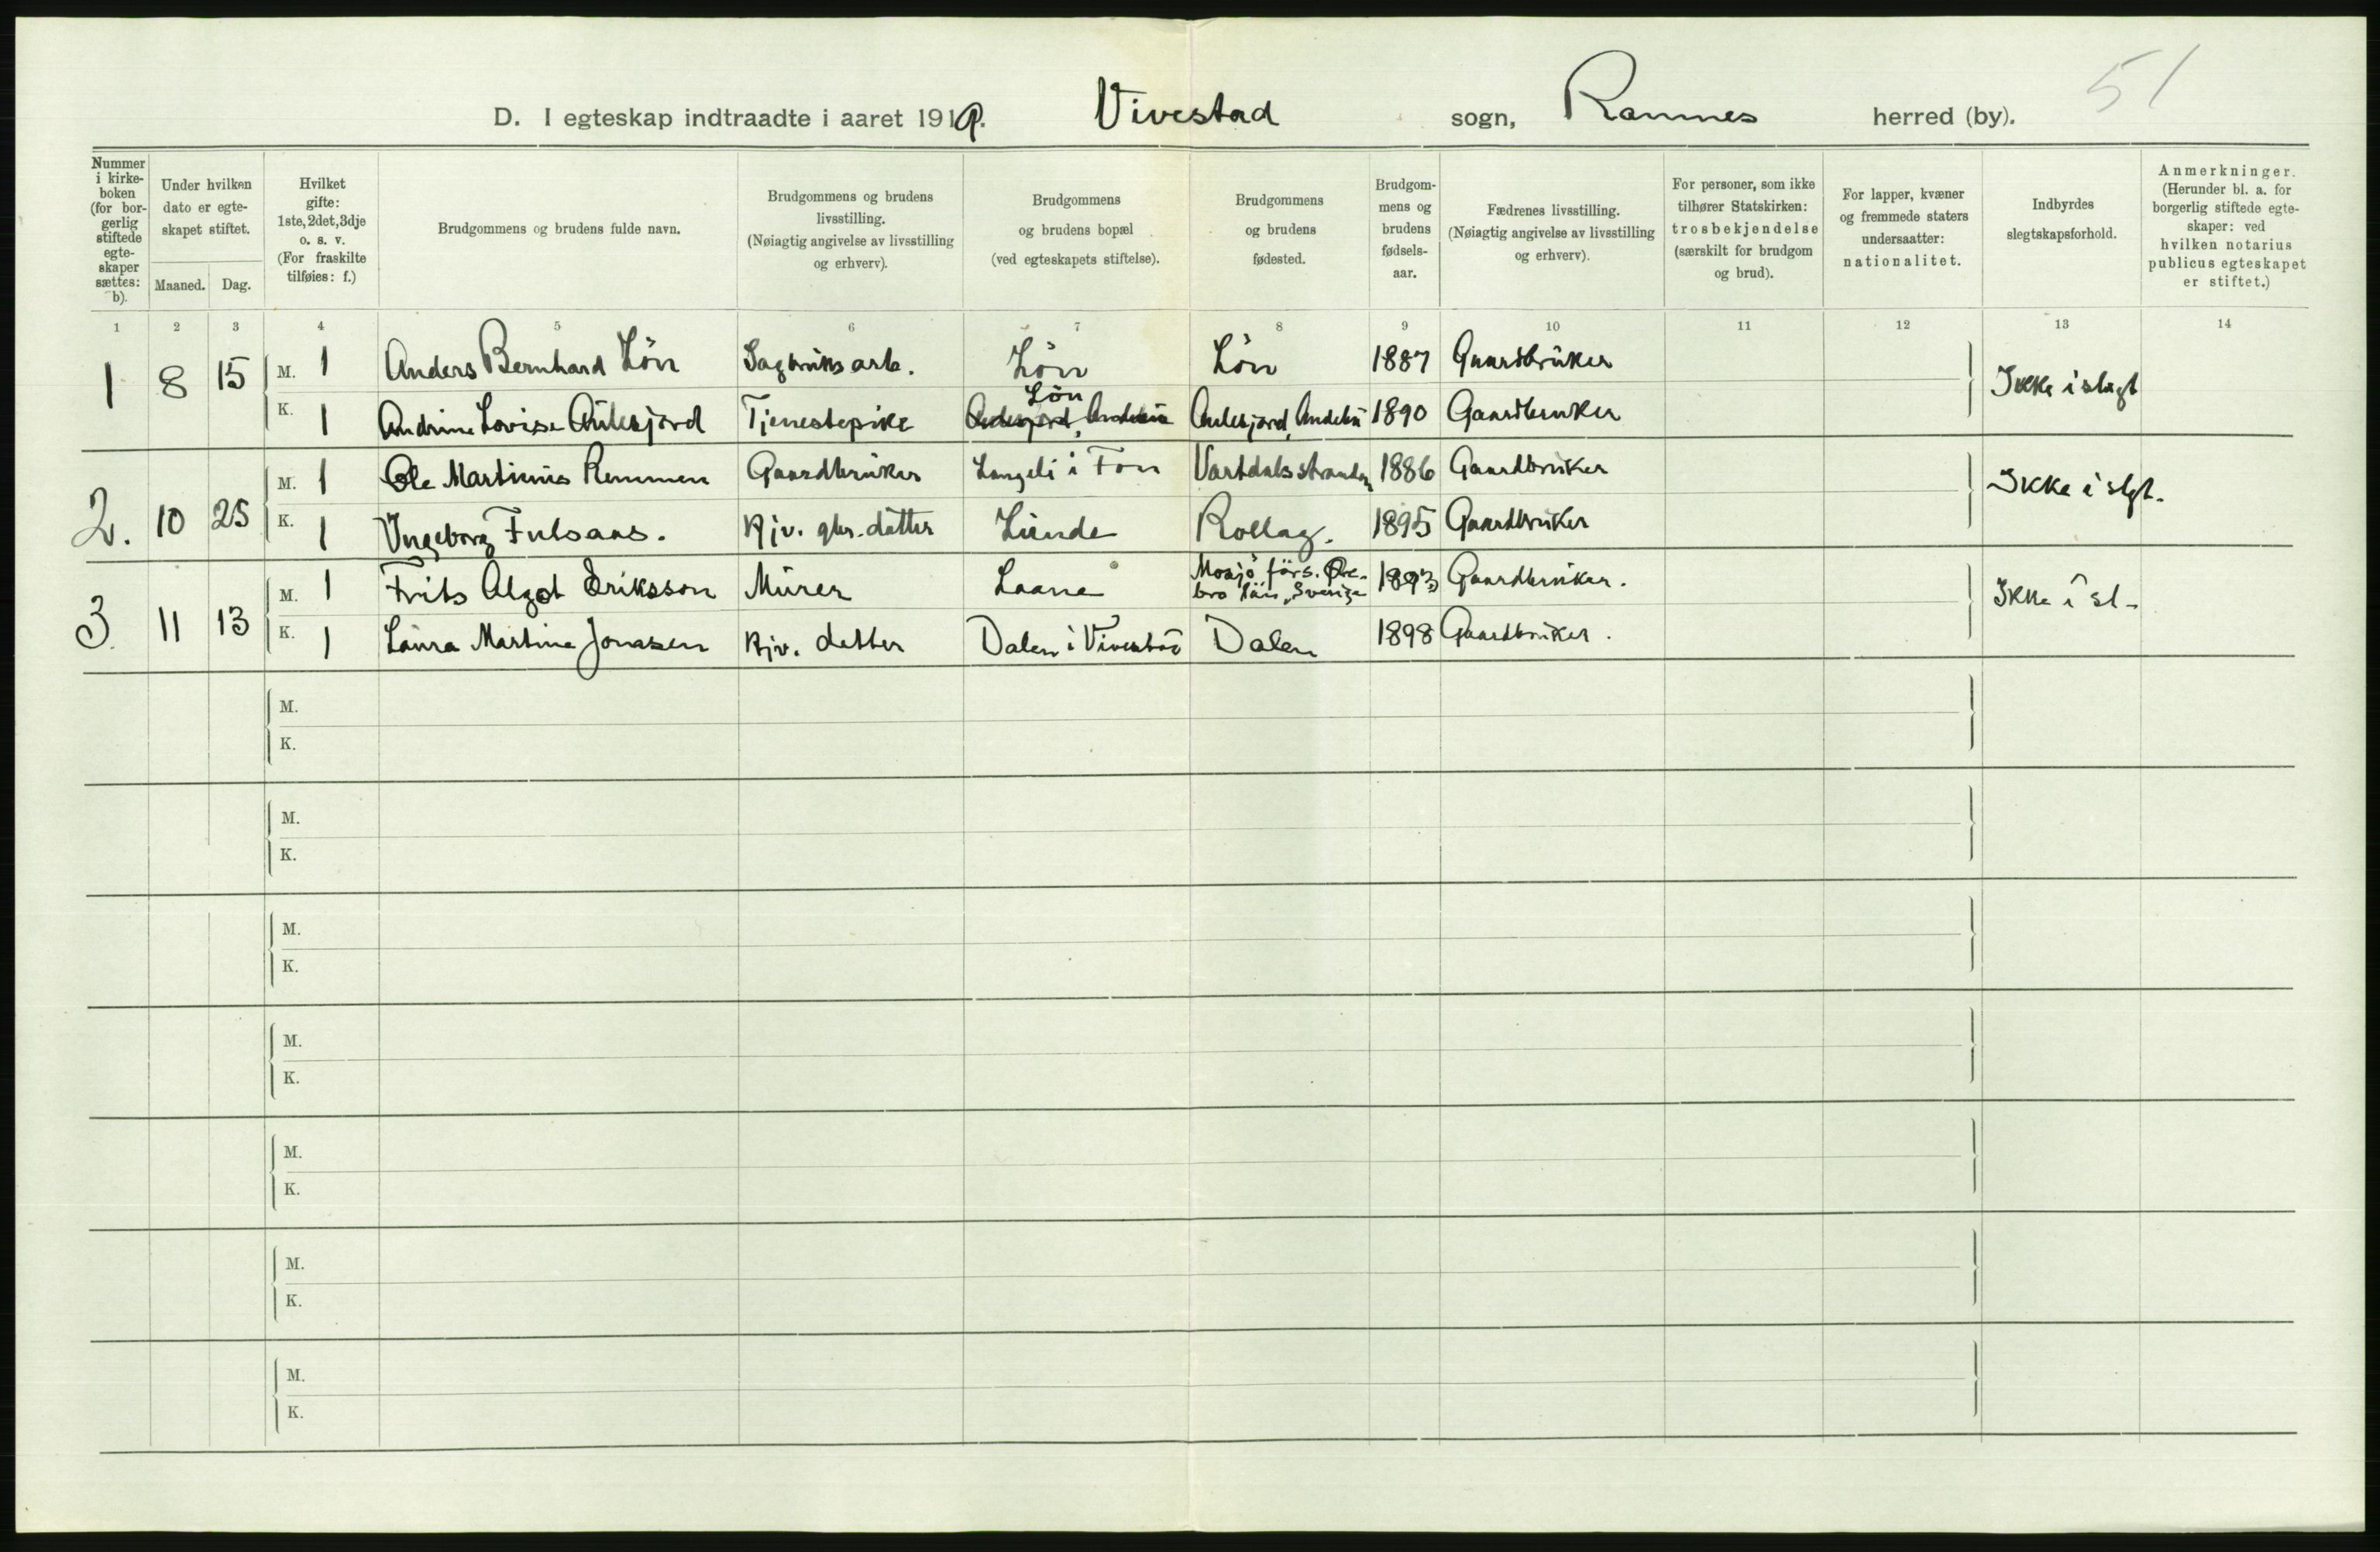 51
D. I egteskap indtraadte i aaret 1919. Vivestad sogn, Ramnes herred (by).
Nummer i kirke-boken (for bor-gerlig stiftede egte-skaper sættes: b).
Under hvilken dato er egte-skapet stiftet.
Maaned. Dag.
Hvilket gifte: 1ste, 2det, 3dje o. s. v. (For fraskilte tilføies: f.)
Brudgommens og brudens fulde navn.
Brudgommens og brudens livsstilling. (Nøiagtig angivelse av livsstilling og erhverv).
Brudgommens og brudens bopæl (ved egteskapets stiftelse).
Brudgommens og brudens fødested.
Brudgom-mens og brudens fødsels-aar.
Fædrenes livsstilling. (Nøiagtig angivelse av livsstilling og erhverv).
For personer, som ikke tilhører Statskirken: trosbekjendelse (særskilt for brudgom og brud).
For lapper, kvæner og fremmede staters undersaatter: nationalitet.
Indbyrdes slegtskapsforhold.
Anmerkninger. (Herunder bl. a. for borgerlig stiftede egte-skaper: ved hvilken notarius publicus egteskapet er stiftet.)
1 2 3 4 5 6 7 8 9 10 11 12 13 14
1 8 15 M. 1 Anders Bernhard Lön Sagbruks arb. Lön Lön 1887 Gaardbruker Ikke i slegt
K. 1 Andrine Lovise Aulesjord Tjenestepike Lön Aulesjord, Andebu 1890 Gaardbruker
2. 10 25 M. 1 Ole Martinius Remmen Gaardbruker Langeli i Fon Vartdalsstranden 1886 Gaardbruker Ikke i slgt.
K. 1 Ingeborg Fulsaas. Hjv. gbr. datter Linde Rollag. 1895 Gaardbruker
3 11 13 M. 1 Frits Algot Eriksson Murer Laane Mosjö förs. Öre-bro län, Sverige 1893 Gaardbruker. Ikke i sl-
K. 1 Laura Martine Jonassen Hjv. datter Dalen i Vivestad Dalen 1898 Gaardbruker.
M.
K.
M.
K.
M.
K.
M.
K.
M.
K.
M.
K.
M.
K.